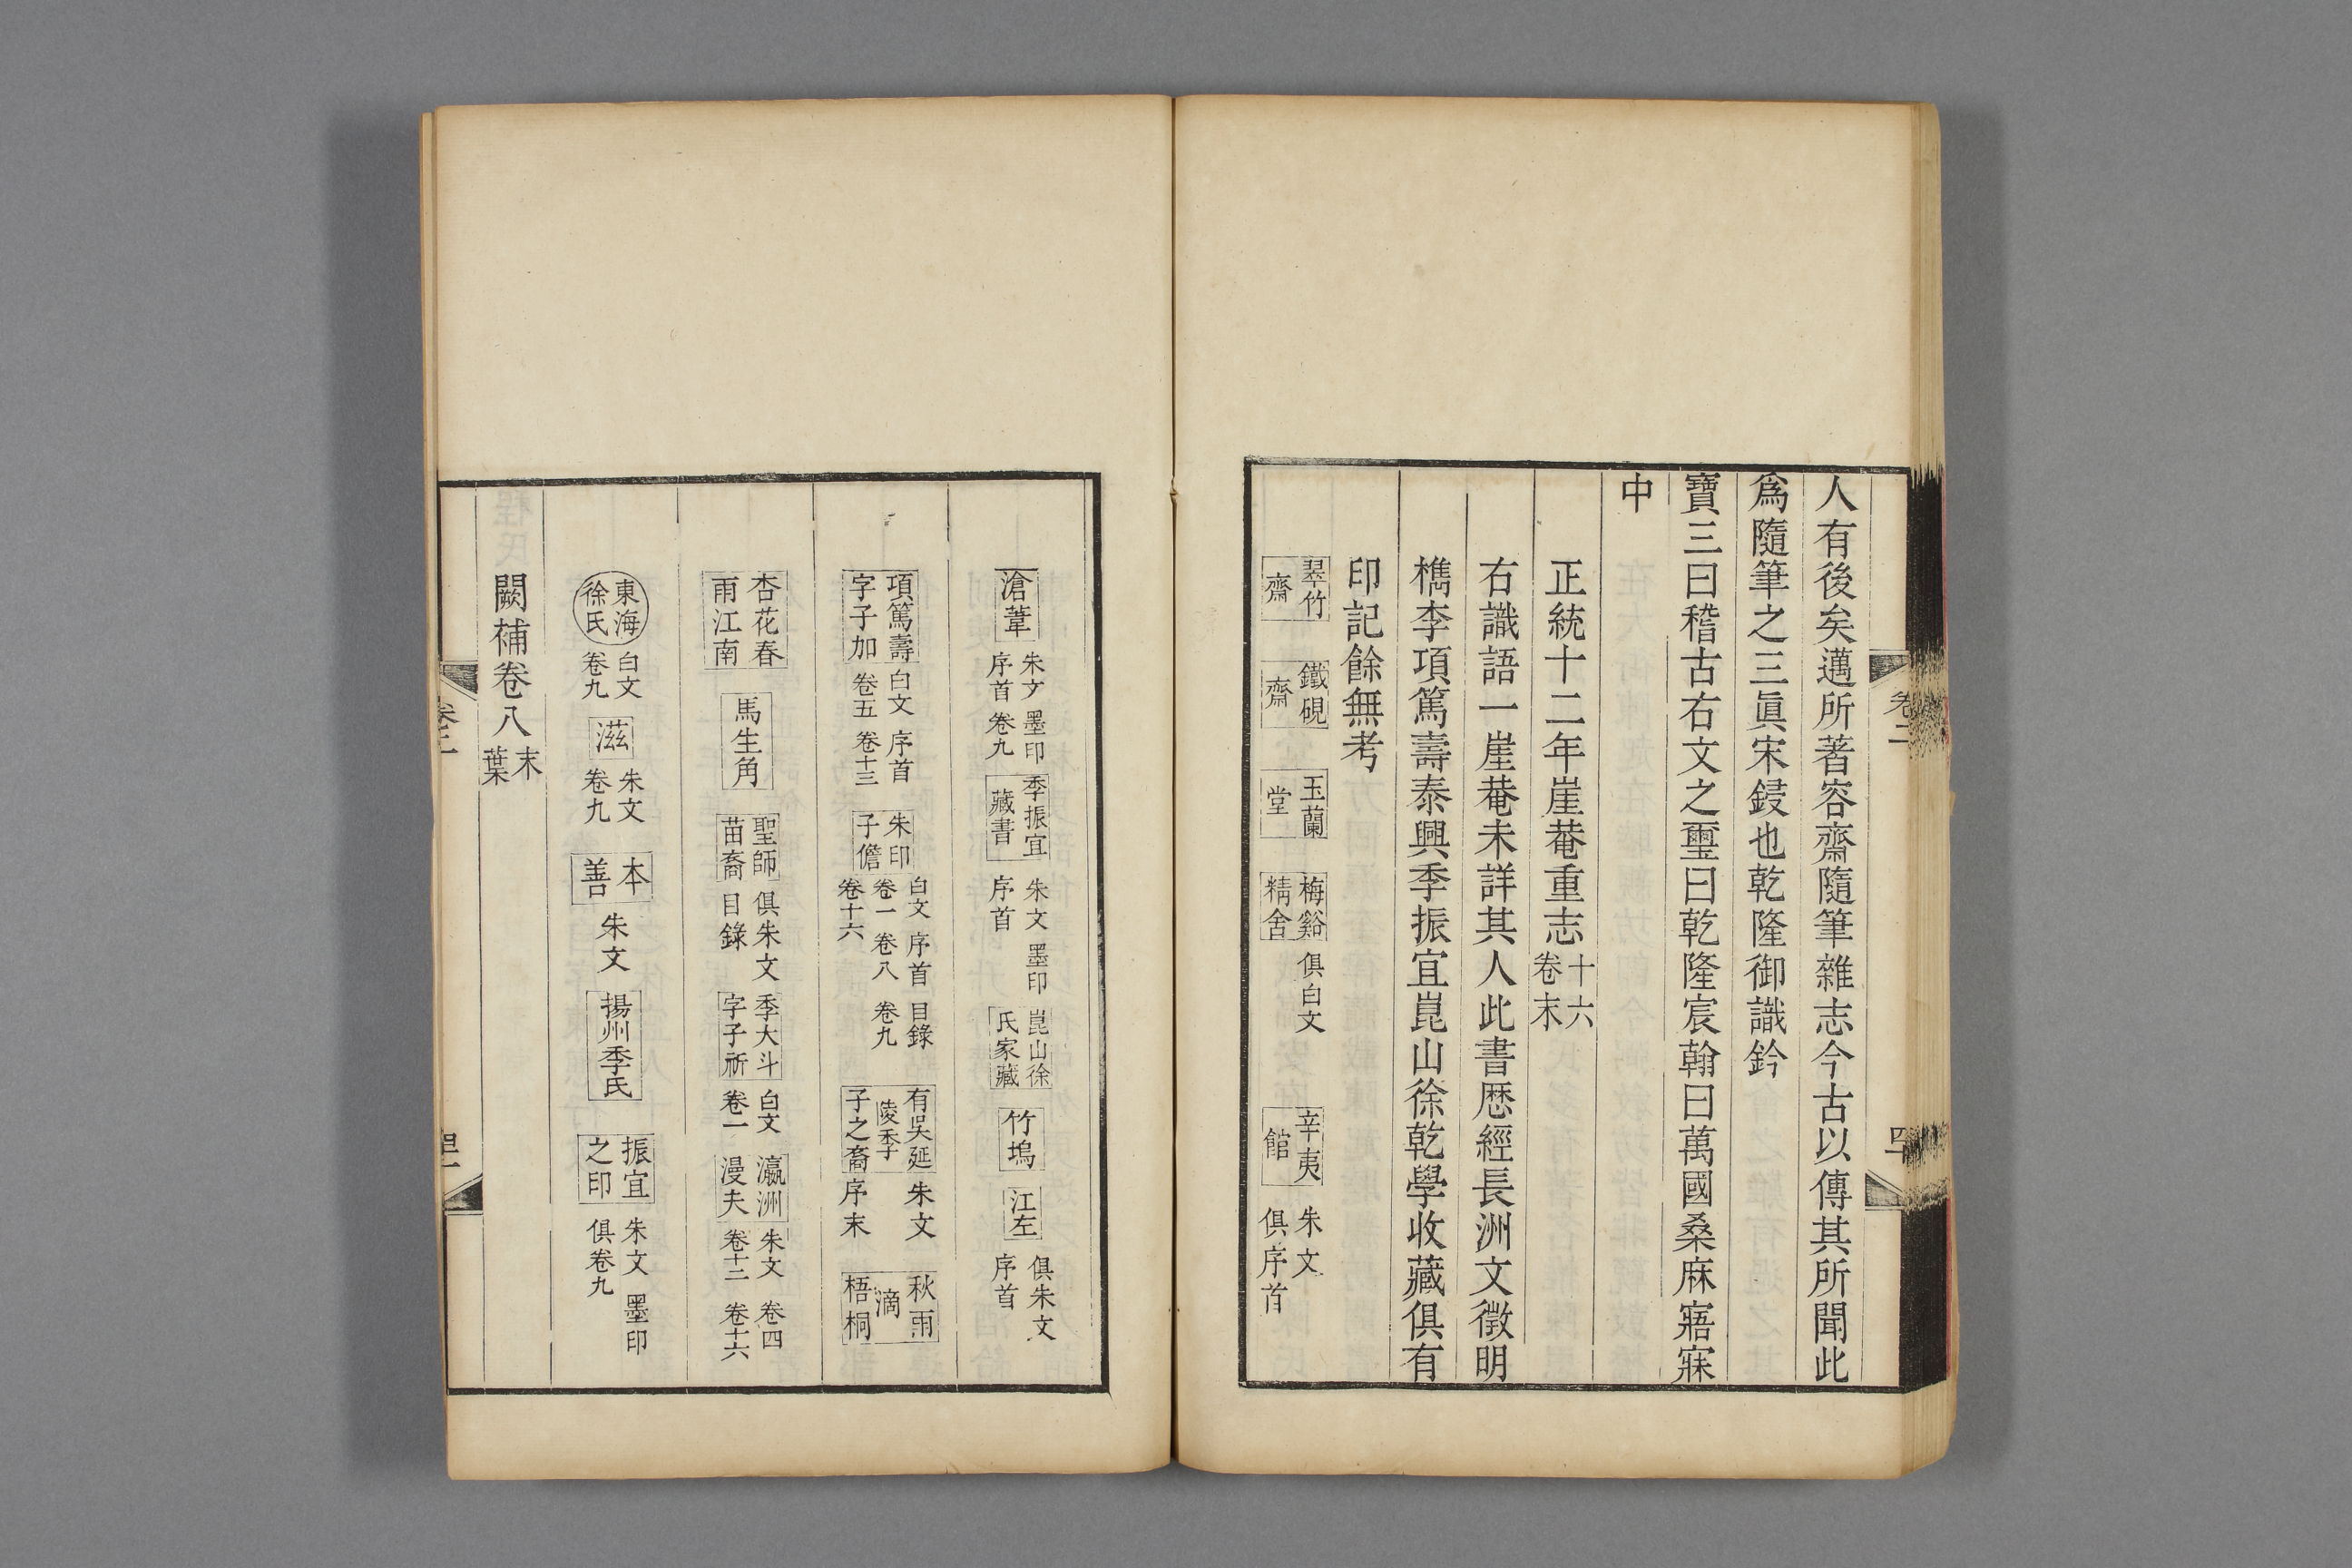 人有後矣邁所著容齋隨筆雜志今古以傳其所聞此
爲隨筆之三眞宋鋟也乾隆御識鈐
寶三曰稽古右文之璽曰乾隆宸翰曰萬國桑麻寤寐
中
正統十二年崖菴重志十六卷末
右識語一崖菴未詳其人此書歷經長洲文徵明
檇李項篤壽泰興季振宜崑山徐乾學收藏俱有
印記餘無考
翠竹齋 鐵硯齋 玉蘭堂 梅谿精舍 俱白文 辛夷館 朱文 俱序首
滄葦 朱文 墨印 序首 卷九 季振宜藏書 朱文 墨印 序首 崑山徐氏家藏 竹塢 江左 俱朱文 序首
項篤壽字子加 白文 序首 卷五 卷十三 朱印子儋 白文 序首 目錄 卷一 卷八 卷九 卷十六 有吳延陵季子之裔 朱文 序末 秋雨滴梧桐
杏花春雨江南 馬生角 聖師苗裔 俱朱文 目錄 季大斗字子祈 白文 卷一 瀛洲漫夫 朱文 卷四 卷十二 卷十六
東海徐氏 白文 卷九 滋 朱文 卷九 本善 朱文 揚州季氏 振宜之印 朱文 墨印 俱卷九
闕補卷八末葉
卷二